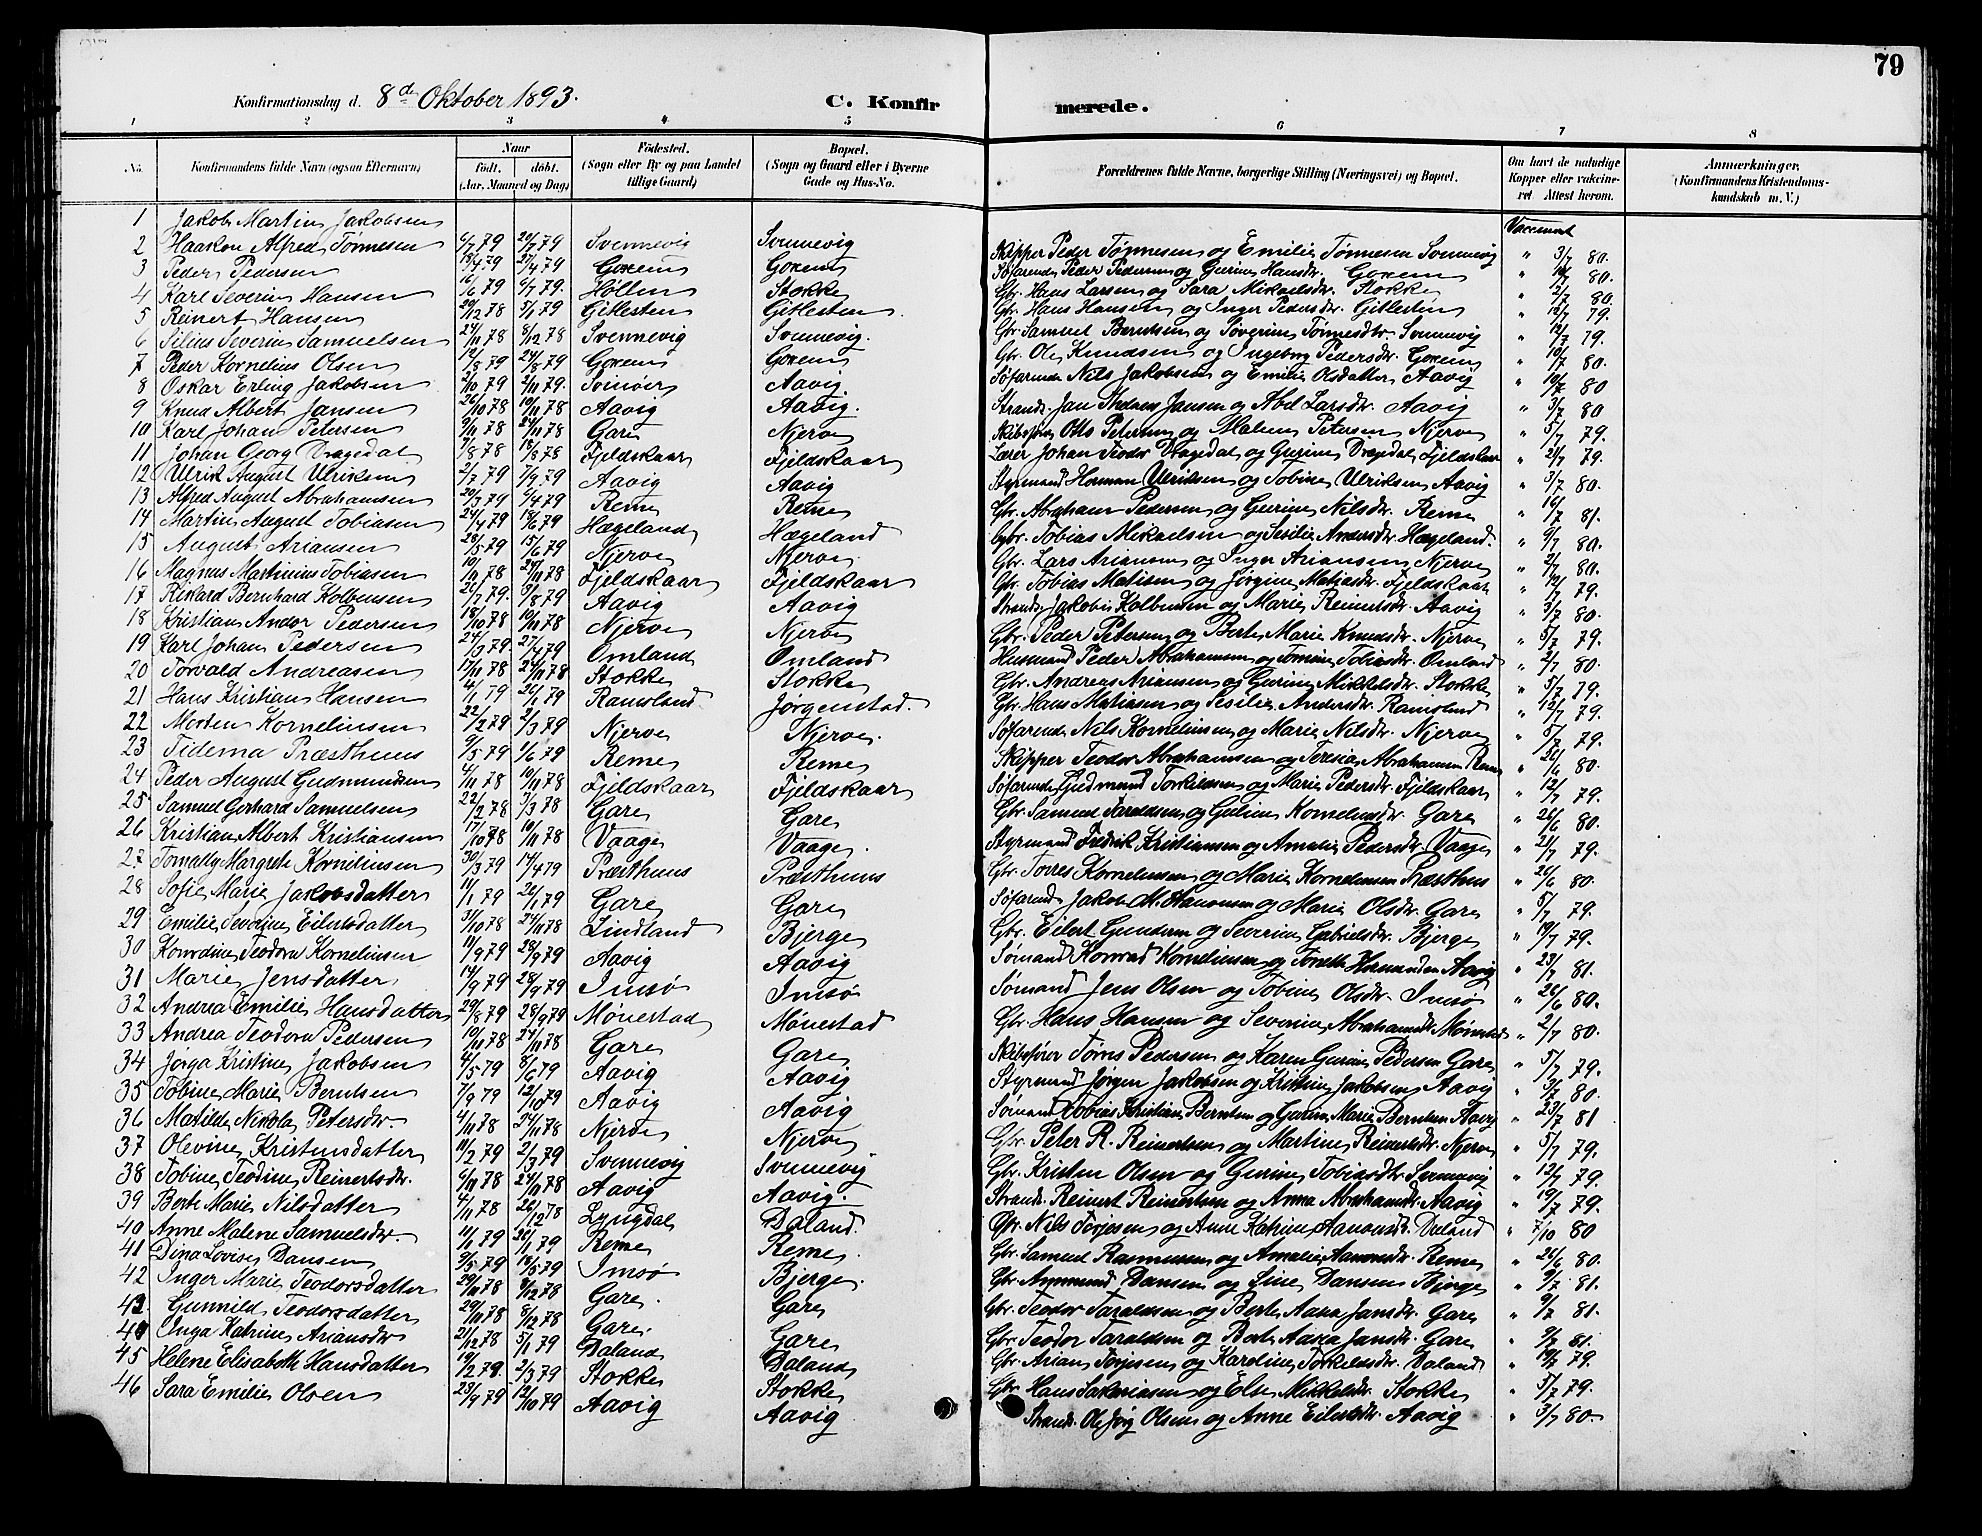 79
Konfirmationsdag d. 8de Oktober 1893. C. Konfirmerede.
1 2 3 4 5 6 7 8
No. Konfirmandens fulde Navn (ogsaa Efternavn) Naar født. døbt. (Aar, Maaned og Dag) Fødested. (Sogn eller By og paa Landet tillige Gaard) Bopæl. (Sogn og Gaard eller i Byerne Gade og Hus-No.) Forældrenes fulde Navne, borgerlige Stilling (Næringsvei) og Bopæl. Om havt de naturlige Kopper eller vakcineret Attest herom. Anmærkninger, (Konfirmandens Kristendomskundskab m. V.)
1 Jakob Martin Jakobsen
2 Haakon Alfred Tønnesen 6/7 79 20/7 79 Svennevig Svennevig Skipper Peder Tønnesen og Emilie Tønnesen Svennevig " 3/7 80.
3 Peder Pedersen 13/4 79 27/4 79 Goxem Goxem Søfarende Peder Pedersen og Gurine Hansdr. Goxem " 80.
4 Karl Severin Hansen 16/6 79 6/7 79. Hillen Stokke Gbr. Hans Larsen og Sara Mikaelsdr. Stokke " 2/7 80.
5 Reinert Hansen 29/12 78 5/1 79 Gitlesten Gitlesten. Gbr. Hans Hansen og Inger Pedersdr. Gitlesten " 12/7 79.
6 Silius Severin Samuelsen 24/11 78 8/12 78 Svennevig Svennevig. Gbr. Samuel Berntsen og Søverine Tønnesdtr. Svennevig " 12/7 79.
7 Peder Kornelius Olsen 12/8 79 24/8 79 Goxem Goxem Gbr. Ole Knudsen og Ingeborg Pedersdr. Goxem " 10/7 80.
8 Oskar Erling Jakobsen 2/10 79 2/11 79. Aavig Søfarende Nils Jakobsen og Emilie Olsdatter Aavig " 10/7 80
9 Knud Albert Jansen 26/10 78 10/11 78 Aavig Aavig. Strands. Jan Jansen og Abel Larsdr. Aavig " 3/7 80
10 Karl Johan Petersen 9/11 78 24/11 78 Gare Njerve Skibsfører Otto Petersen og Malene Petersen Njerve " 5/7 79.
11 Johan Georg Dragedal 7/8 78 18/8 78 Fjeldskaar Fjeldskaar Lærer Johan Teodor Dragedal og Gurine Dragedal Fjeldskaar " 2/7 79.
12 Ulrik August Ulriksen 2/7 79 7/9 79 Aavig Aavig Styrmand Herman Ulriksen og Tobine Ulriksen Aavig " 3/7 80.
13 Alfred August Abrahamsen 6/4 79 Reme Reme Gbr. Abraham Pedersen og Gurine Nilsdr. Reme " 81.
14 Martin August Tobiasen 24/4 79 18/6 79 Hægeland Hægeland Gbr. Tobias Mikaelsen og Sesilie Andersdr. Hægeland. " 9/7 80.
15 August Ariansen 28/5 79 15/6 79 Njerve Njerve Gbr. Lars Ariansen og Inger Ariansen Njerve " 2/7 80.
16 Magnus Martinius Tobiasen 10/11 78 24/11 78 Fjeldskaar Fjeldskaar Gbr. Tobias Matisen og Jørgine Matiasdr. Fjeldskaar " 12/7 79.
17 Rikard Bernhard Kolbensen 20/7 79. 3/8 79 Aavig Aavig Strands. Jakobis Kolbensen og Marie Reinertsdr. Aavig " 3/7 80.
18 Kristian Andor Pedersen 18/10 78 10/11 78 Njerve Njerve Gbr. Peder Petersen og Berte Marie Knudsdr. Njerve " 5/7 79.
19 Karl Johan Pedersen 24/3 79. 27/4 79 Omland Omland Husmand Peder Abrahamsen og Tomine Tobiasdr. Omland " 2/7 80.
20 Torvald Andreasen 17/11 78 24/11 78 Stokke Stokke Gbr. Andreas Ariansen og Gurine Mikkelsdr. Stokke " 5/7 79.
21 Hans Kristian Hansen 4/1 79 26/1 79 Ramsland Jørgenstad. Gbr. Hans Matiasen og Sesilie Andersdr. Ramsland " 12/7 79.
22 Morten Korneliusen 22/2 79 2/3 79 Njerve Njerve. Søfarende Nils Korneliusen og Marie Nilsdr. Njerve " 5/7 79.
23 Tidema Præsthuus 9/5 79 1/6 79 Reme Reme Skipper Teodor Abrahamsen og Teresie Abrahamsen Reme " 26/6 80.
24 Peder August Gudmundsen 4/11 78 10/11 78 Fjeldskaar Fjeldskaar Søfarende Gudmund Torkildsen og Marie Pedersdr. Fjeldskaar " 12/7 79.
25 Samuel Gerhard Samuelsen 22/2 78 3/3 78 Gare Gare Gbr. Samuel Taraldsen og Guline Korneliusdr. Gare " 26/6 80.
26 Kristian Albert Kristiansen 17/10 78 10/11 78 Vaage Vaage. Styrmand Fredrik Kristiansen og Amalie Pedersdr. Vaage " 2/7 79.
27 Tomally Margrete Korneliusen 30/3 79 14/4 79 Præsthuus Præsthuus Gbr. Torres Korneliusen og Marie Korneliusen Præsthus " 26/6 80.
28 Sofie Marie Jakobsdatter 11/1 79 26/1 79 Gare Gare Søfarende Jakob M. Aanonsen og Marie Olsdr. Gare " 5/7 79.
29 Emilie Severine Eilertsdatter 31/10 78 24/11 78 Lindland Bjerge Gbr. Eilert Gundersen og Severine Gabrielsdr. Bjerge " 19/7 79.
30 Konradine Teodora Korneliusen 11/9 79 28/9 79 Aavig Aavig Sømand Konrad Korneliusen og Tomette Aavig " 23/7 81.
31 Marie Jensdatter 14/9 79 28/9 79 Imsø Imsø Sømand Jens Olsen og Tobine Olsdr. Imsø " 26/6 80.
32 Andrea Emilie Hansdatter 29/8 79 28/9 79 Mønestad Mønestad Gbr. Hans Hansen og Severine Abrahamsdr. Mønestad " 2/7 80.
33 Andrea Teodora Pedersen 10/11 78 24/11 78 Gare Gare Skibsfører Tørres Pedersen og Karen Gurine Pedersen Gare " 5/7 79.
34 Jørga Kristine Jakobsen 4/5 79 8/6 79 Aavig Aavig Styrmand Jørgen Jakobsen og Kristine Jakobsen Aavig " 3/7 80.
35 Tobine Marie Berntsen 7/9 79 12/10 79 Aavig Aavig Sømand Tobias Kristian Berntsen og Gurine Marie Berntsen Aavig " 23/7 81
36 Matilde Nikola Petersdr. 4/11 78 24/11 78 Njerve Njerve Gbr. Peter R. Reinertsen og Martine Reinertsdr. Njerve " 5/7 79.
37 Olevine Kristensdatter 11/2 79 2/3 79 Svennevig Svennevig Gbr. Kristen Olsen og Gurine Tobiasdtr. Svennevig " 12/7 79.
38 Tobine Teodine Reinertsdr. 6/11 78 24/11 78 Aavig Aavig. Strands. Reinert Reinertsen og Anna Abrahamsdr. Aavig " 19/7 79.
39 Berte Marie Nilsdatter 4/11 78 26/12 78 Lyngdal Daland. Gbr. Nils Torjesen og Anne Katrine Aanonsdr. Daland " 7/10 80
40 Anne Malene Samuelsdr. 11/1 79 26/1 79 Reme Reme. Gbr. Samuel Rasmussen og Amalie Aanonsdr. Reme " 26/6 80.
41 Dina Lovise Dansen 9/5 79 18/5 79 Imsø Bjerge. Gbr. Aanmund Dansen og Sine Dansen Bjerge " 9/7 81.
42 Inger Marie Teodorsdatter 29/11 78 8/12 78 Gare. Gare Gbr. Teodor Taraldsen og Berte Aasa Jansdr. Gare " 9/7 81.
43 Gunnild Teodorsdatter 29/11 78 8/12 78 Gare. Gare Gbr. Teodor Taraldsen og Berte Aasa Jansdr. Gare " 9/7 81.
44 Inga Katrine Ariansdr 21/12 78 5/1 79 Daland Daland Gbr. Arian Torjesen og Karoline Torkelsdr. Daland " 19/7 79.
45 Helene Elisabeth Hansdatter 19/2 79. 2/3 79 Stokke Stokke Gbr. Hans Sakariasen og Else Mikkelsdr. Stokke " 5/7 79.
46 Sara Emilie Olsen 23/9 79 12/10 79 Aavig Aavig Strands. Ole Jørg Olsen og Anne Eilertsdr. Aavig " 3/7 80.